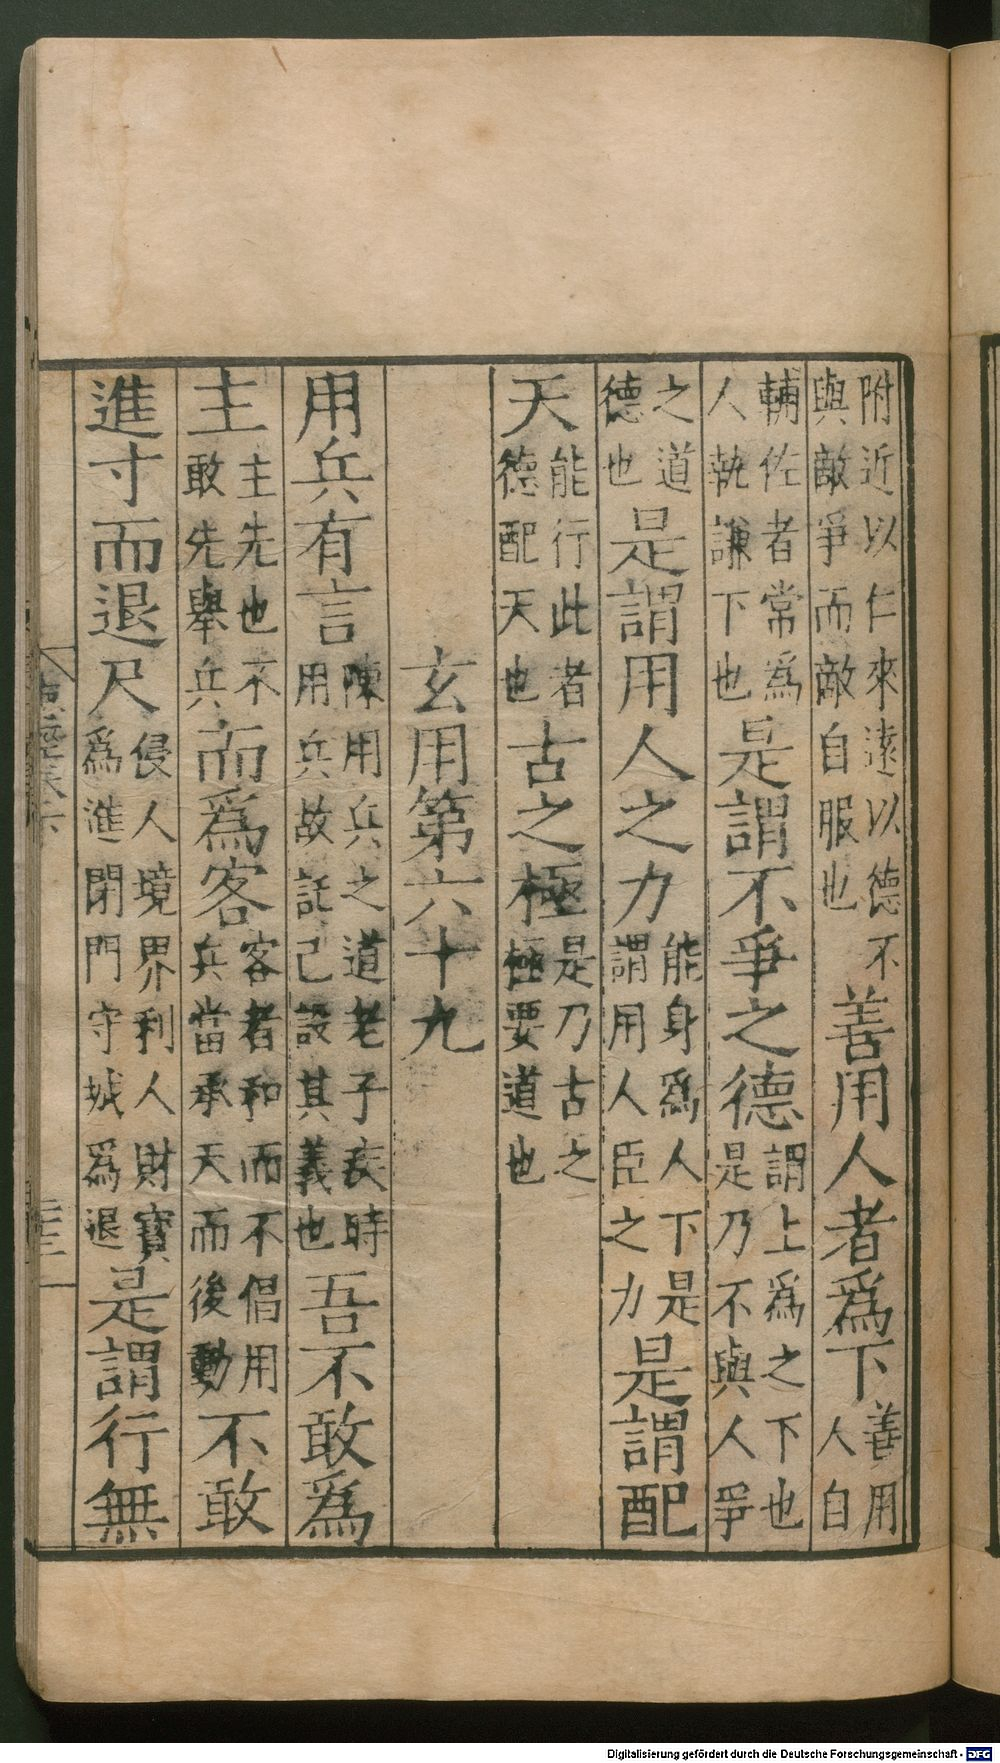 附近以仁來遠以德不與敵爭而敵自服也善用人者爲下善用人自
輔佐者常爲人執謙下也是謂不爭之德謂上爲之下也是乃不與人爭
之道德也是謂用人之力能身爲人下是謂用人臣之力是謂配
天能行此者德配天也古之極是乃古之極要道也
玄用第六十九
用兵有言陳用兵之道老子疾時用兵故託己設其義也吾不敢爲
主主先也不敢先舉兵而爲客客者和而不倡用兵當承天而後動不敢
進寸而退尺侵人境界利人財寶爲進閉門守城爲退是謂行無
Digitalisierung gefördert durch die Deutsche Forschungsgemeinschaft - DFG